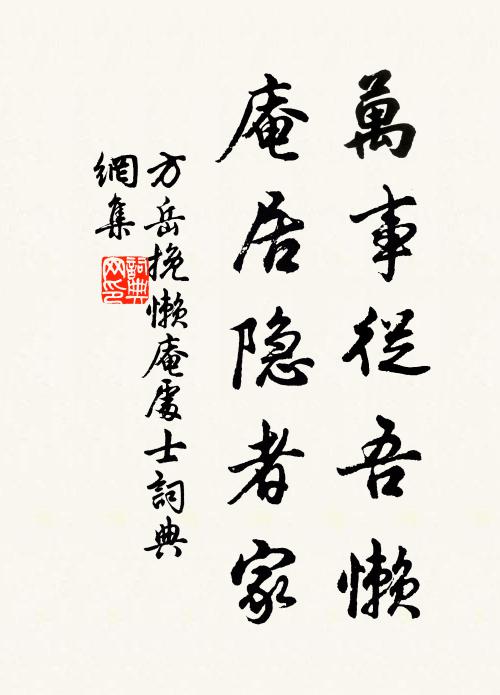 萬事從吾懶
庵居隐者家
方岳挽懶庵處士詞典
網集
詞典
网印